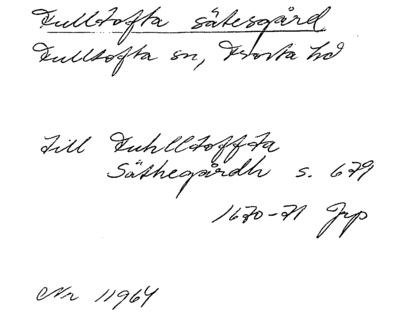 Fulltofta sätesgård
Fulltofta sn, Frosta hd
till Fuhlltoffta
Säthegårdh s. 679
1670-71 Jrp
Nr 11964